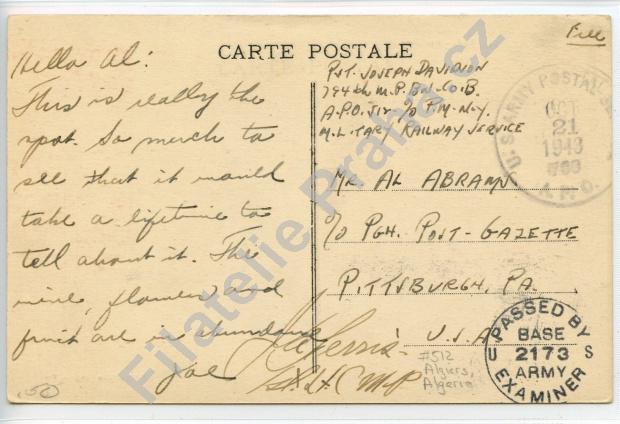 Free
CARTE POSTALE
Hello Al:
This is really the
spot. So much to
see that it would
take a lifetime to
tell about it. The
wine, flowers and
fruit are in abundance
Joe
PVT. JOSEPH DAVIDSON
794th M.P. BN. CO. B.
A.P.O. 512 c/o P.M. N.Y.
MILITARY RAILWAY SERVICE
MR AL ABRAMS
c/o PGH. POST-GAZETTE
PITTSBURGH, PA.
U.S.A.
U.S. ARMY POSTAL SE
OCT
21
1943
A.P.O.
PASSED BY
BASE
U 2173 S
ARMY
EXAMINER
1st Lt CMP
#512
Algiers,
Algeria
.50
Filatelie Prahe.cz